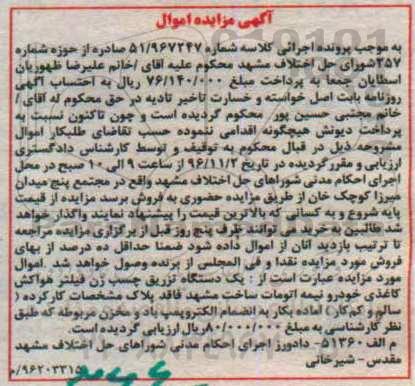 آگهی مزایده اموال
به موجب پرونده اجرائی کلاسه شماره ۵۱/۹۶۷۲۴۷ صادره از حوزه شماره
۲۵۷شورای حل اختلاف مشهد محکوم علیه آقای /خانم علیرضا ظهوریان
اسطایان جمعا به پرداخت مبلغ ۷۶/۱۴۰/۰۰۰ ریال به احتساب آگهی
روزنامه بابت اصل خواسته و خسارت تاخیر تادیه در حق محکوم له آقای /
خانم مجتبی حسین پور محکوم گردیده است و چون تاکنون نسبت به
پرداخت دیونش هیچگونه اقدامی ننموده حسب تقاضای طلبکار اموال
مشروحه ذیل در قبال محکوم به توقیف و توسط کارشناس دادگستری
ارزیابی و مقرر گردیده در تاریخ ۹۶/۱۱/۲ از ساعت ۹ الی ۱۰ صبح در محل
اجرای احکام مدنی شوراهای حل اختلاف مشهد واقع در مجتمع پنج میدان
میرزا کوچک خان از طریق مزایده حضوری به فروش برسد مزایده از قیمت
پایه شروع و به کسانی که بالاترین قیمت را پیشنهاد نمایند واگذار خواهد
شد طالبین به خرید می توانند ظرف پنج روز قبل از برگزاری مزایده مراجعه
تا ترتیب بازدید آنان از اموال داده شود ضمنا حداقل ده درصد از بهای
فروش مورد مزایده نقدا و فی المجلس از برنده وصول خواهد شد. اموال
مورد مزایده عبارت است از : یک دستگاه تزریق چسب زن فیلتر هواکش
کاغذی خودرو نیمه اتومات ساخت مشهد فاقد پلاک مشخصات کارکرده (
سالم و کم کار) آماده بکار به انضمام الکتروپمپ باد و مخزن مربوطه که طبق
نظر کارشناسی به مبلغ ۸۰/۰۰۰/۰۰۰ریال ارزیابی گردیده است.
م الف ۵۱۳۶۰- دادورز اجرای احکام مدنی شوراهای حل اختلاف مشهد
مقدس - شیرخانی
۹۶۲۰۳۳۱۵/م